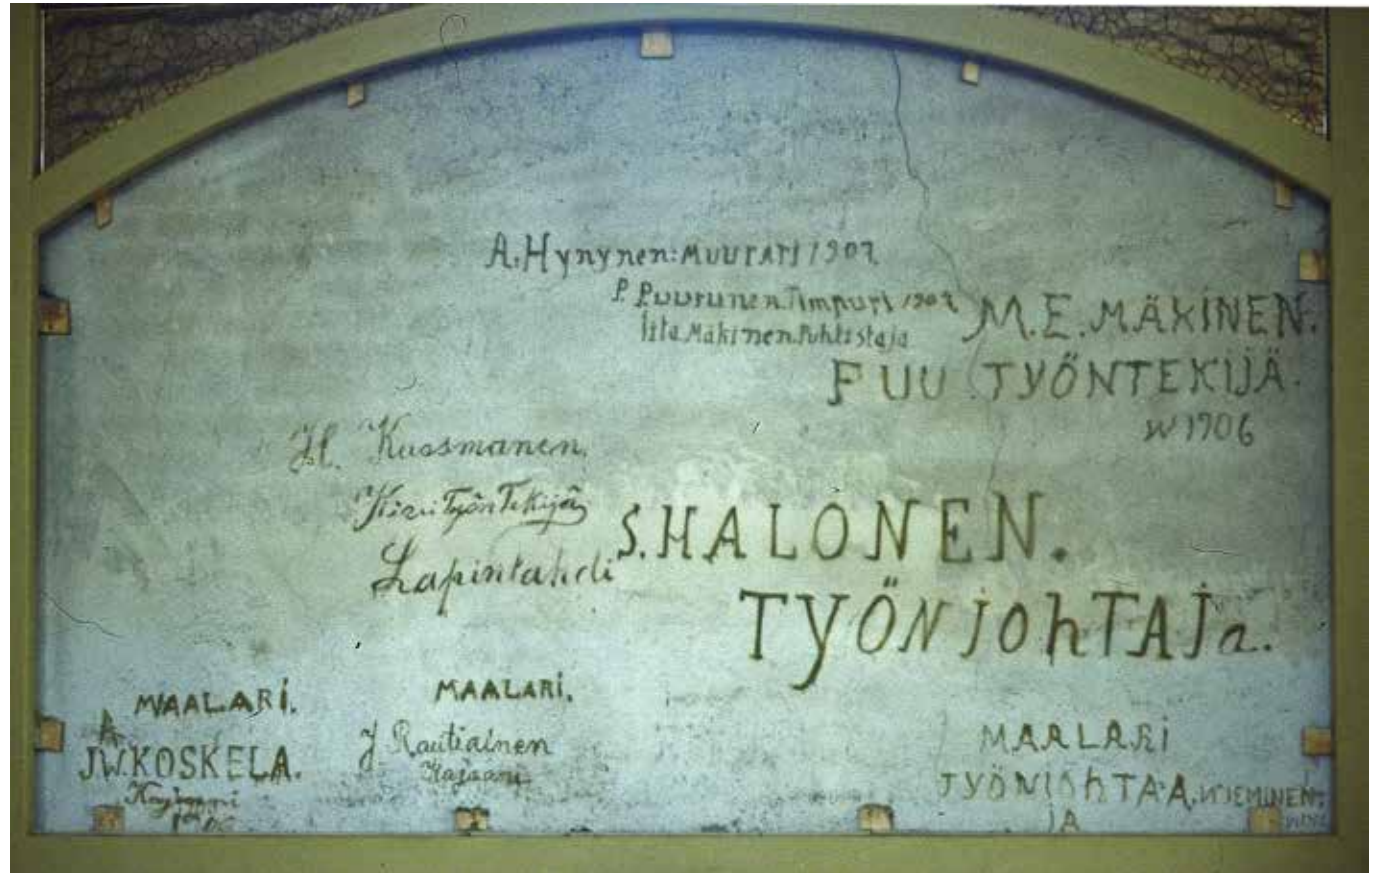 A. Hynynen: MUURARI 1907.
P. Puurunen. Timpuri 1907
Iita Mäkinen. Puhtistaja
M. E. MÄKINEN.
PUU TYÖNTEKIJÄ.
W 1906
H. Kuosmanen.
Kivi Työn Tekijä
Lapinlahdi
S. HALONEN.
TYÖNjOhTAJa.
MAALARI.
A
JW. KOSKELA.
MAALARI.
J. Rautiainen
Kajaani
MAALARi
TYÖNjOhTAA. NIEMINEN.
jA